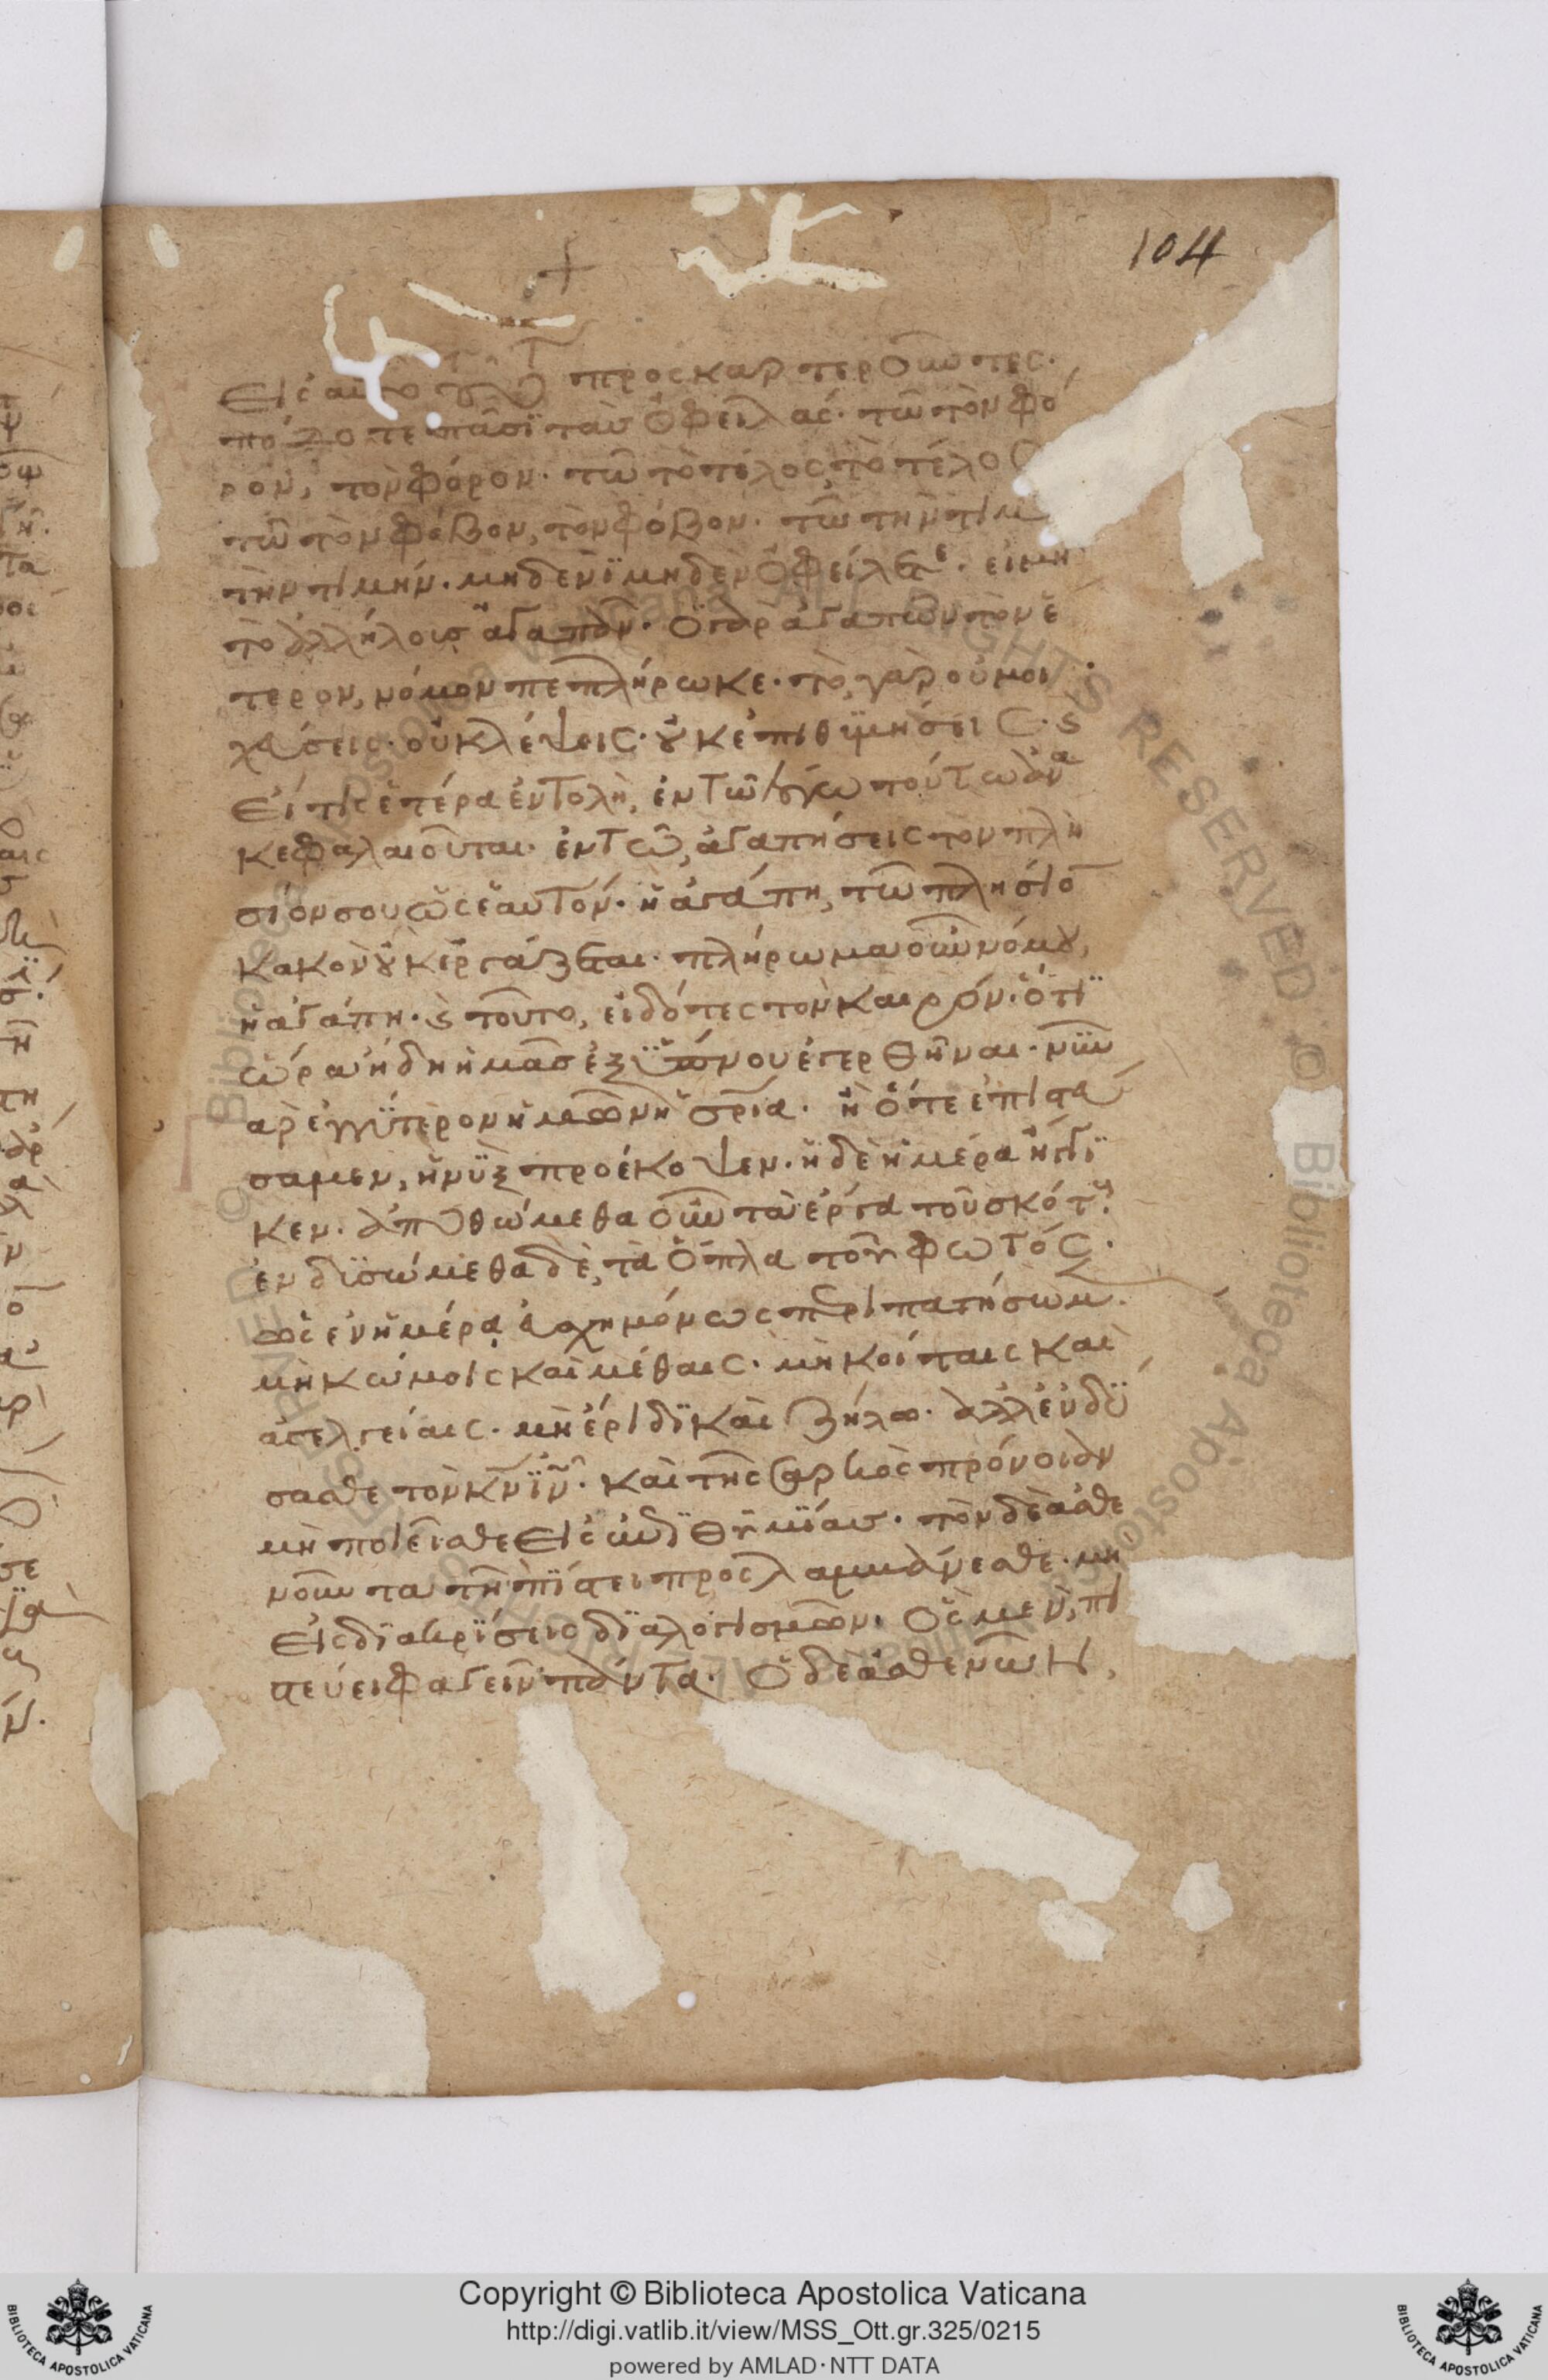 104
εἰς αὐτὸ τοῦτο προσκαρτεροῦντες·
ἀπόδοτε πᾶσϊ τὰς ὀφειλάς· τῶ τὸν φό
ρον, τὸν φόρον· τῶ τὸ τέλος, τὸ τέλος
τῶ τὸν φόβον, τὸν φόβον· τῶ τὴν τιμ
τὴν τιμήν· μηδενὶ μηδὲν ὀφείλετε· εἰμὴ
τὸ ἀλλήλοις ἀγαπᾶν· ὁ γὰρ ἀγαπῶν τὸν ἕ
τερον, νόμον πεπλήρωκε· τὸ, γὰρ οὐ μοι
χεύσεις· οὐ κλέψεις· οὐκ ἐπιθϋμήσεις· ϗ
εἴ τις ἑτέρα ἐντολὴ, ἐν τῶ λόγω τούτω ἀνα
κεφαλαιοῦται· ἐν τῶ, ἀγαπήσεις τὸν πλη
σίον σου ὡς ἑαυτόν· ἡ ἀγάπη, τῶ πλησίον
κακὸν οὐκ ἐργάζεται· πλήρωμα οὖν νόμου,
ἡ ἀγάπη· ϗ τοῦτο, εἰδότες τὸν καιρόν· ὅτϊ
ὥρα ἤδη ἡμᾶς ἐξ ὕπνου ἐγερθῆναι· νῦν
αρ ἐγγϋτερον ἡμῶν ἡ σρια· ἢ ὅτε ἐπιστεύ
σαμεν, ἡ νὺξ προέκοψεν· ἡ δὲ ἡμέρα ἤγγϊ
κεν· ἀποθώμεθα οὖν τὰ ἔργα τοῦ σκότους·
ἐνδϋσώμεθα δὲ, τὰ ὅπλα τοῦ φωτός·
ὡς ἐν ἡμέρα εὐσχημόνως περιπατήσωμ·
μὴ κώμοις καὶ μέθαις· μὴ κοίταις καὶ
ἀσελγείαις· μὴ ἔριδϊ καὶ ζήλω· ἀλλ' ἐνδύ
σασθε τὸν κν ιν· καὶ τῆς σαρκὸς πρόνοιαν
μὴ ποιεῖσθε εἰς ἐπϊθυμϊας· τὸν δὲ ἀσθε
νοῦντα τῆ πίστει προσλαμβάνεσθε· μὴ
εἰς διακρϊσεις δϊαλογισμῶν· ὃς μὲν, πι
στεύει φαγεῖν πάντα· ὁ δὲ ἀσθενῶν,
Copyright © Biblioteca Apostolica Vaticana
http://digi.vatlib.it/view/MSS_Ott.gr.325/0215
powered by AMLAD·NTT DATA